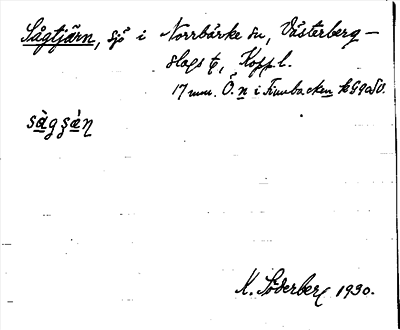 Sågtjärn, sjö i Norrbärke sn, Västerberg-
slags tg, Kopp l.
17 mm. Ö. n i Finnbacken
sàgsàn
K. Söderberg 1930.